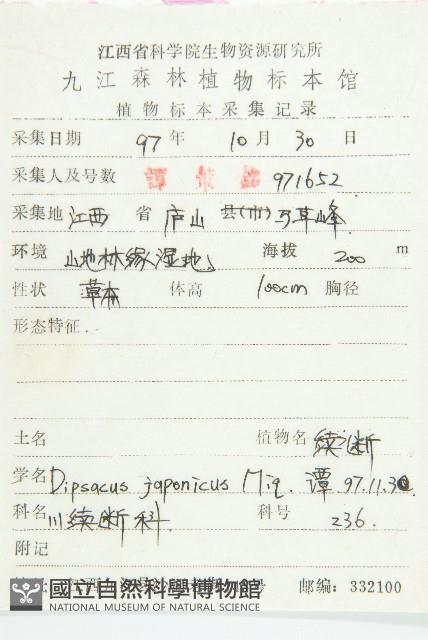 江西省科学院生物资源研究所
九江森林植物标本馆
植物标本采集记录
采集日期 97 年 10 月 30 日
采集人及号数 谭 971652
采集地 江西 省 庐山 县(市) 马草峰
环境 山地林缘湿地 海拔 200 m
性状 草本 体高 100cm 胸径
形态特征.
土名 植物名 续断
学名 Dipsacus japonicus Miq. 谭 97.11.30.
科名 川续断科 科号 236.
附记
邮编: 332100
國立自然科學博物館
NATIONAL MUSEUM OF NATURAL SCIENCE